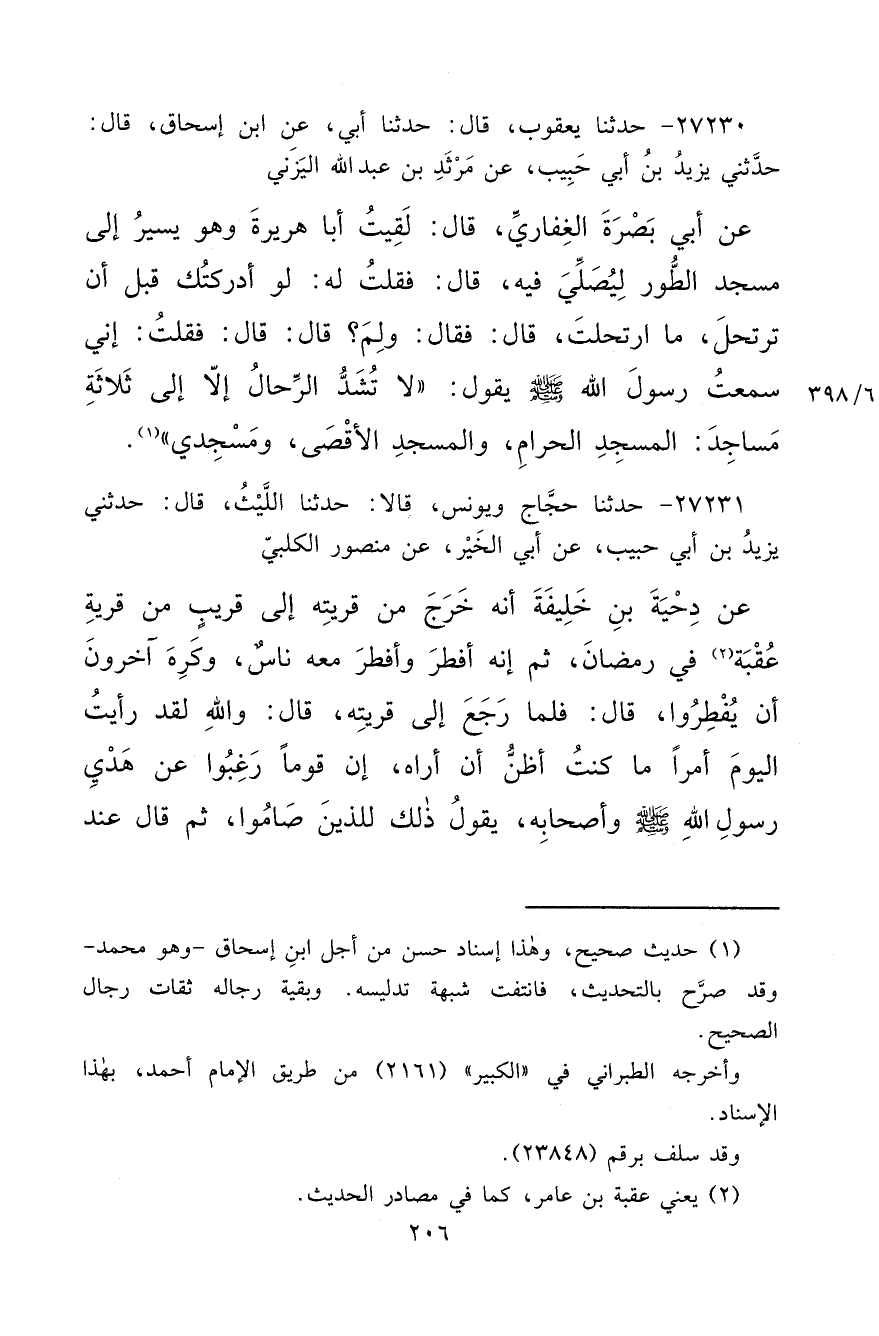 ٢٧٢٣٠- حدثنا يعقوب، قال: حدثنا أبي، عن ابن إسحاق، قال:
حدَّثني يزيدُ بنُ أبي حَبِيب، عن مَرْثَدِ بن عبد الله اليَزَني
عن أبي بَصْرَةَ الغِفاريِّ، قال: لَقِيتُ أبا هريرةَ وهو يسيرُ إلى
مسجد الطُّور لِيُصَلِّيَ فيه، قال: فقلتُ له: لو أدركتُك قبل أن
ترتحلَ، ما ارتحلتَ، قال: فقال: ولِمَ؟ قال: قال: فقلتُ: إني
سمعتُ رسولَ الله ﷺ يقول: «لا تُشَدُّ الرِّحالُ إلّا إلى ثَلاثَةِ
٣٩٨/٦
مَساجِدَ: المسجِدِ الحرامِ، والمسجدِ الأقْصَى، ومَسْجِدي»(١).
٢٧٢٣١- حدثنا حجَّاج ويونس، قالا: حدثنا اللَّيْثُ، قال: حدثني
يزيدُ بن أبي حبيب، عن أبي الخَيْر، عن منصور الكلبيّ
عن دِحْيَةَ بنِ خَلِيفَةَ أنه خَرَجَ من قريتِه إلى قريبٍ من قريةِ
عُقْبَة(٢) في رمضانَ، ثم إنه أفطرَ وأفطرَ معه ناسٌ، وكَرِهَ آخرونَ
أن يُفْطِرُوا، قال: فلما رَجَعَ إلى قريتِه، قال: واللهِ لقد رأيتُ
اليومَ أمراً ما كنتُ أظنُّ أن أراه، إن قوماً رَغِبُوا عن هَدْيِ
رسولِ اللهِ ﷺ وأصحابِه، يقولُ ذٰلك للذينَ صَامُوا، ثم قال عند
(١) حديث صحيح، وهٰذا إسناد حسن من أجل ابنِ إسحاق -وهو محمد-
وقد صرَّح بالتحديث، فانتفت شبهة تدليسه. وبقية رجاله ثقات رجال
الصحيح.
وأخرجه الطبراني في «الكبير» (٢١٦١) من طريق الإمام أحمد، بهٰذا
الإسناد.
وقد سلف برقم (٢٣٨٤٨).
(٢) يعني عقبة بن عامر، كما في مصادر الحديث.
٢٠٦